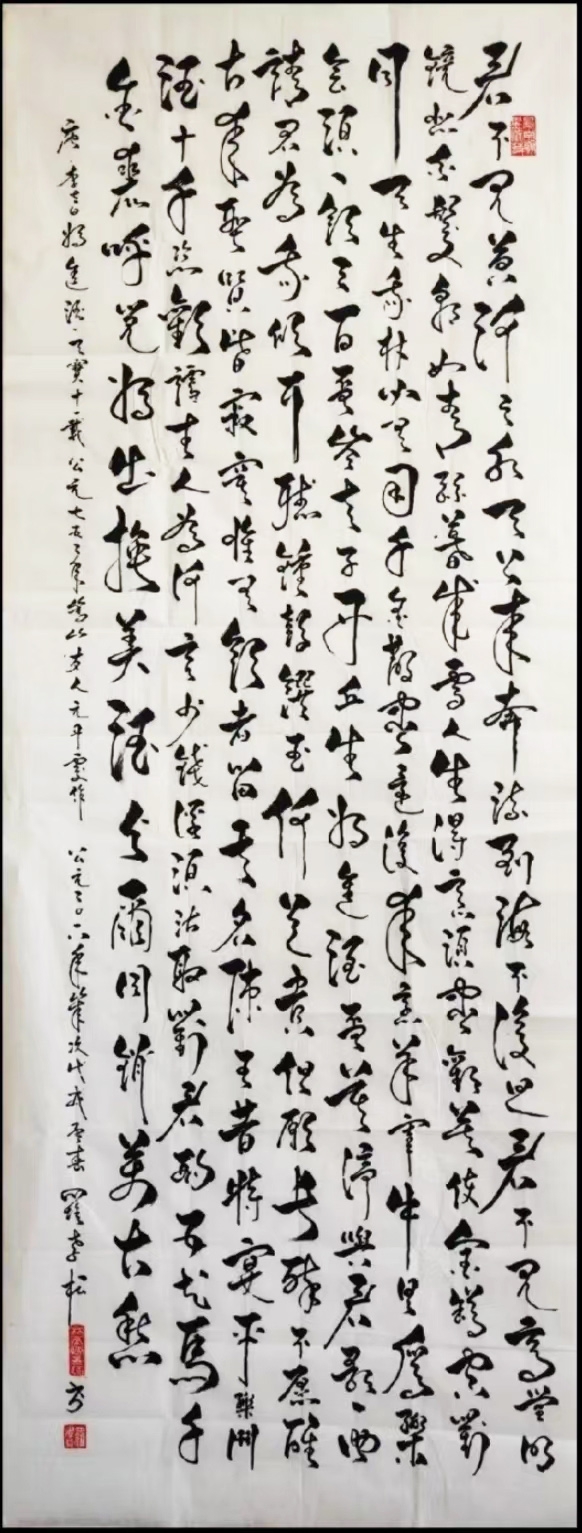 君不見黃河之水天上來奔流到海不復回君不見高堂明
鏡悲白髮朝如青絲暮成雪人生得意須盡歡莫使金樽空對
月天生我材必有用千金散盡還復來烹羊宰牛且為樂
會須一飲三百杯岑夫子丹丘生將進酒杯莫停與君歌一曲
請君為我傾耳聽鐘鼓饌玉何足貴但願長醉不愿醒
古來聖賢皆寂寞惟有飲者留其名陳王昔時宴平樂鬥
酒十千恣歡謔主人為何言少錢徑須沽取對君酌五花馬千
金裘呼兒將出換美酒與爾同銷萬古愁
唐李白將進酒天寶十一載公元七五二年嵩山友人元丹處作 公元二〇〇六年筆次戊春 李松 書